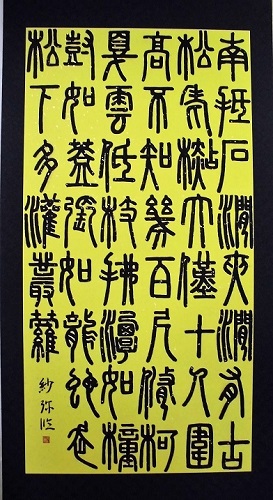 南抵石澗夾澗有古
松老杉大僅十人圍
高不知幾百尺脩柯
戛雲低枝拂潭如幢
豎如蓋張如龍蛇走
松下多灌叢蘿
紗弥臨